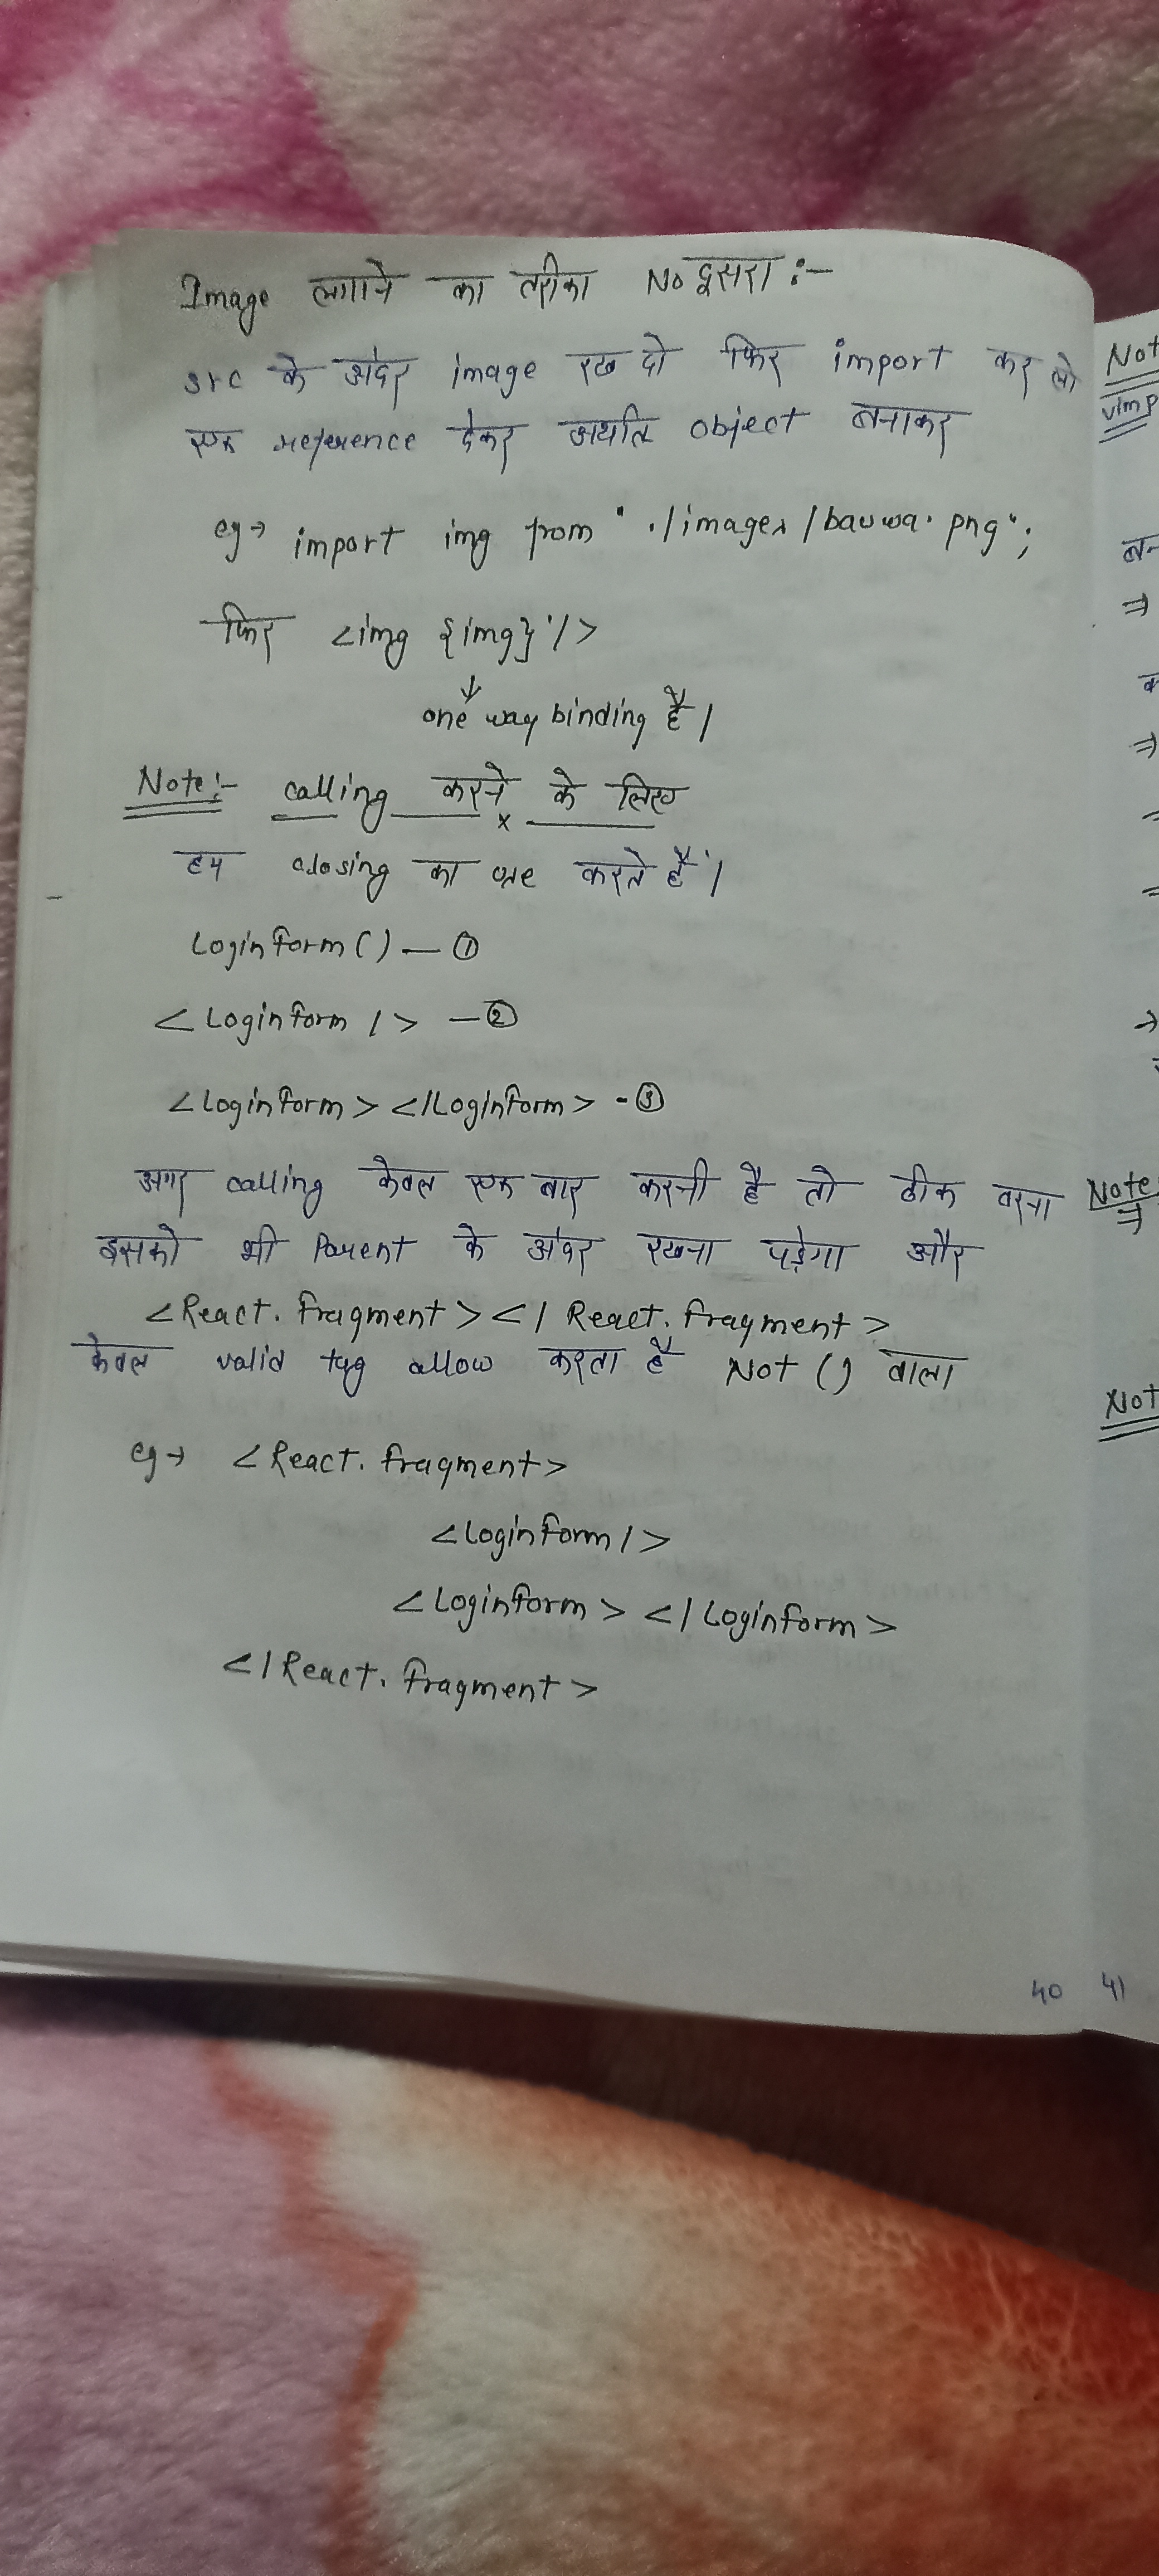 Image लगाने का तरीका No दूसरा :-
src के अंदर image रख दो फिर import कर लो
एक reference देकर अर्थात object बनाकर
eg → import img from "./images/bauwa.png";
फिर <img {img} />
↓
one way binding है।
Note:- calling करने के लिए
हम closing का use करते हैं।
LoginForm() — ①
<LoginForm /> — ②
<LoginForm></LoginForm> - ③
अगर calling केवल एक बार करनी है तो ठीक वरना
इसको भी Parent के अंदर रखना पड़ेगा और
<React.Fragment></React.Fragment>
केवल valid tag allow करता है Not () वाला
eg → <React.Fragment>
<LoginForm/>
<LoginForm></LoginForm>
</React.Fragment>
40
Not
vimp
बन
Note
Not
41